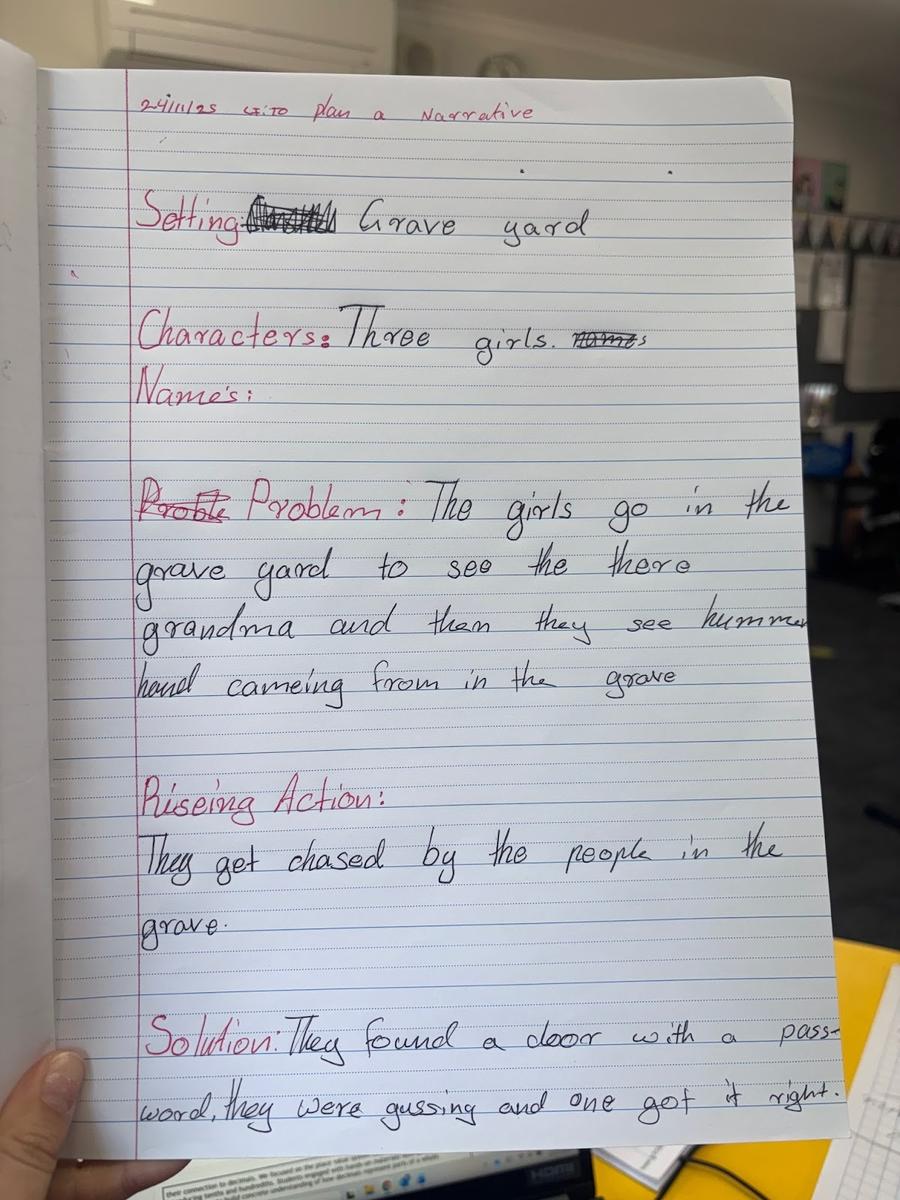 24/11/25 LI: TO plan a Narrative
Setting: Grave yard
Characters: Three girls. names
Name's:
Proble Problem: The girls go in the
grave yard to see the there
grandma and then they see hummen
hand cameing from in the grave
Riseing Action:
They get chased by the people in the
grave.
Solution: They found a door with a pass-
word, they were gussing and one got it right.
their connection to decimals. We focused on the place value